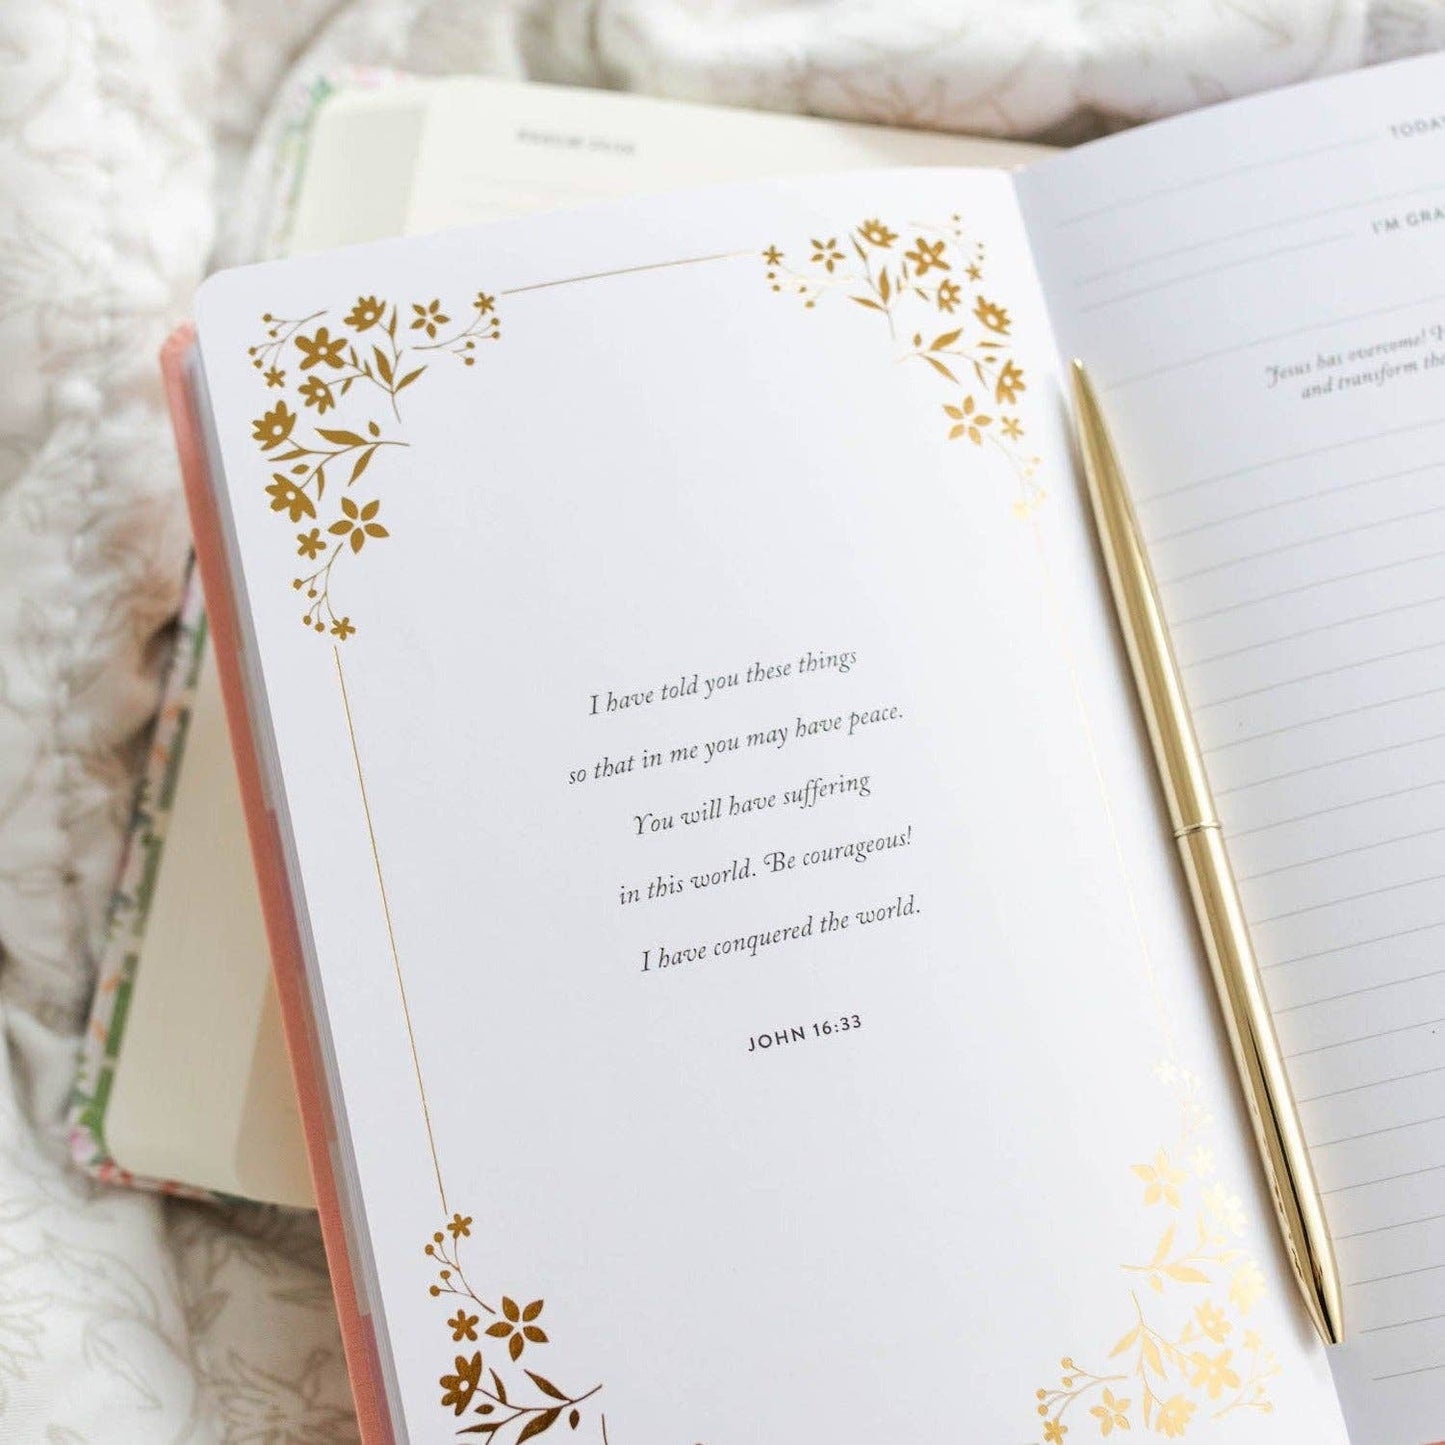 I have told you these things
so that in me you may have peace.
You will have suffering
in this world. Be courageous!
I have conquered the world.
JOHN 16:33
TODA
I'M GRA
Jesus has overcome!
and transform the